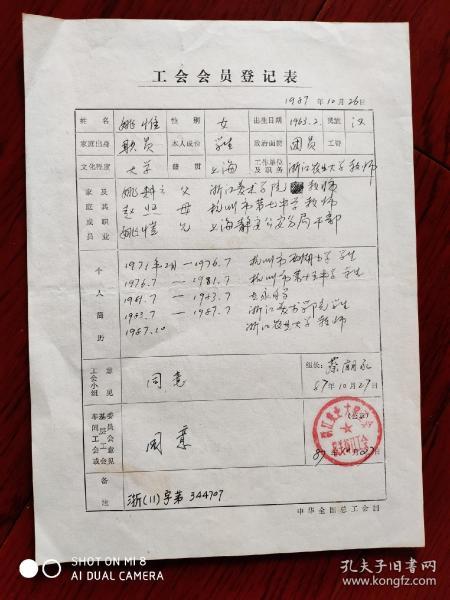 工会会员登记表
1987年10月26日
姓名 姚惟 性别 女 出生日期 1963.2. 民族 汉
家庭出身 职员 本人成份 学生 政治面貌 团员 工资
文化程度 大学 籍贯 上海 工作单位及职务 浙江农业大学教师
家庭成员及其职业
父 浙江美术学院 教师
母 杭州市第七中学教师
姚恺 兄 上海静安公安分局干部
个人简历
1971年2月—1976.7 杭州市 小学 学生
1976.7—1981.7 杭州市第十五中学 学生
1981.7—1983.7
1983.7—1987.7 浙江美术学院学生
1987.10 浙江农业大学教师
工会小组意见 同意 组长:
87年10月27日
车间工会或基层工会委员会意见 同意 (公章)
87年10月27日
备注 浙(11)字第344707
中华全国总工会制
SHOT ON MI 8
AI DUAL CAMERA
孔夫子旧书网
www.kongfz.com